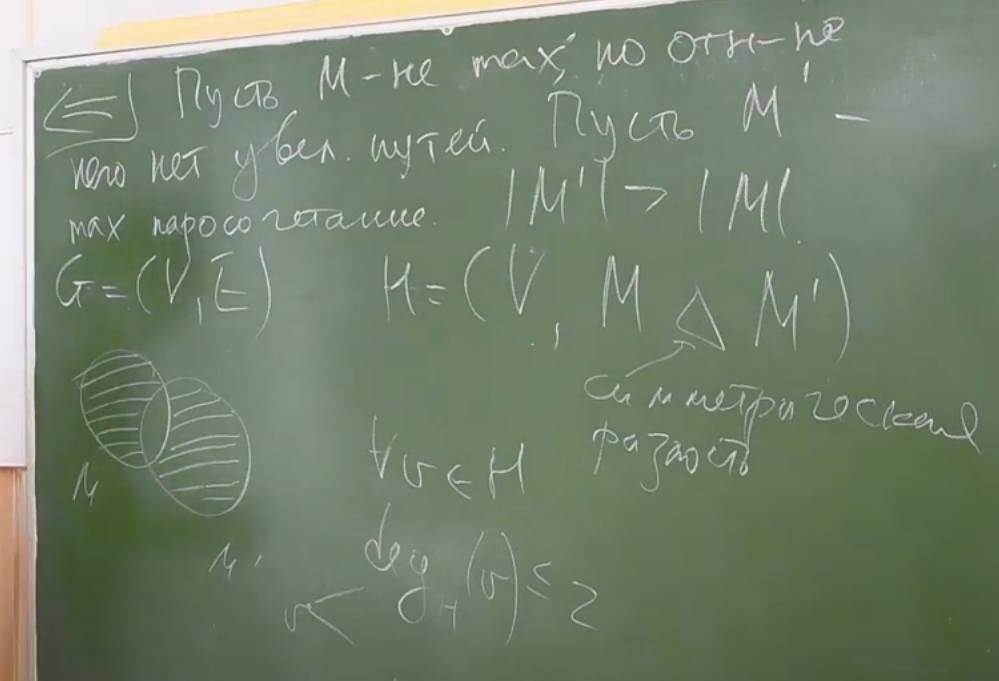 ⇐ Пусть M - не max, но отн-но
него нет увел. путей. Пусть M' -
max паросочетание. |M'| > |M|.
G = (V, E) H = (V, M △ M')
симметрическая
разность
M
M'
∀v ∈ H
deg_H(v) ≤ 2
v